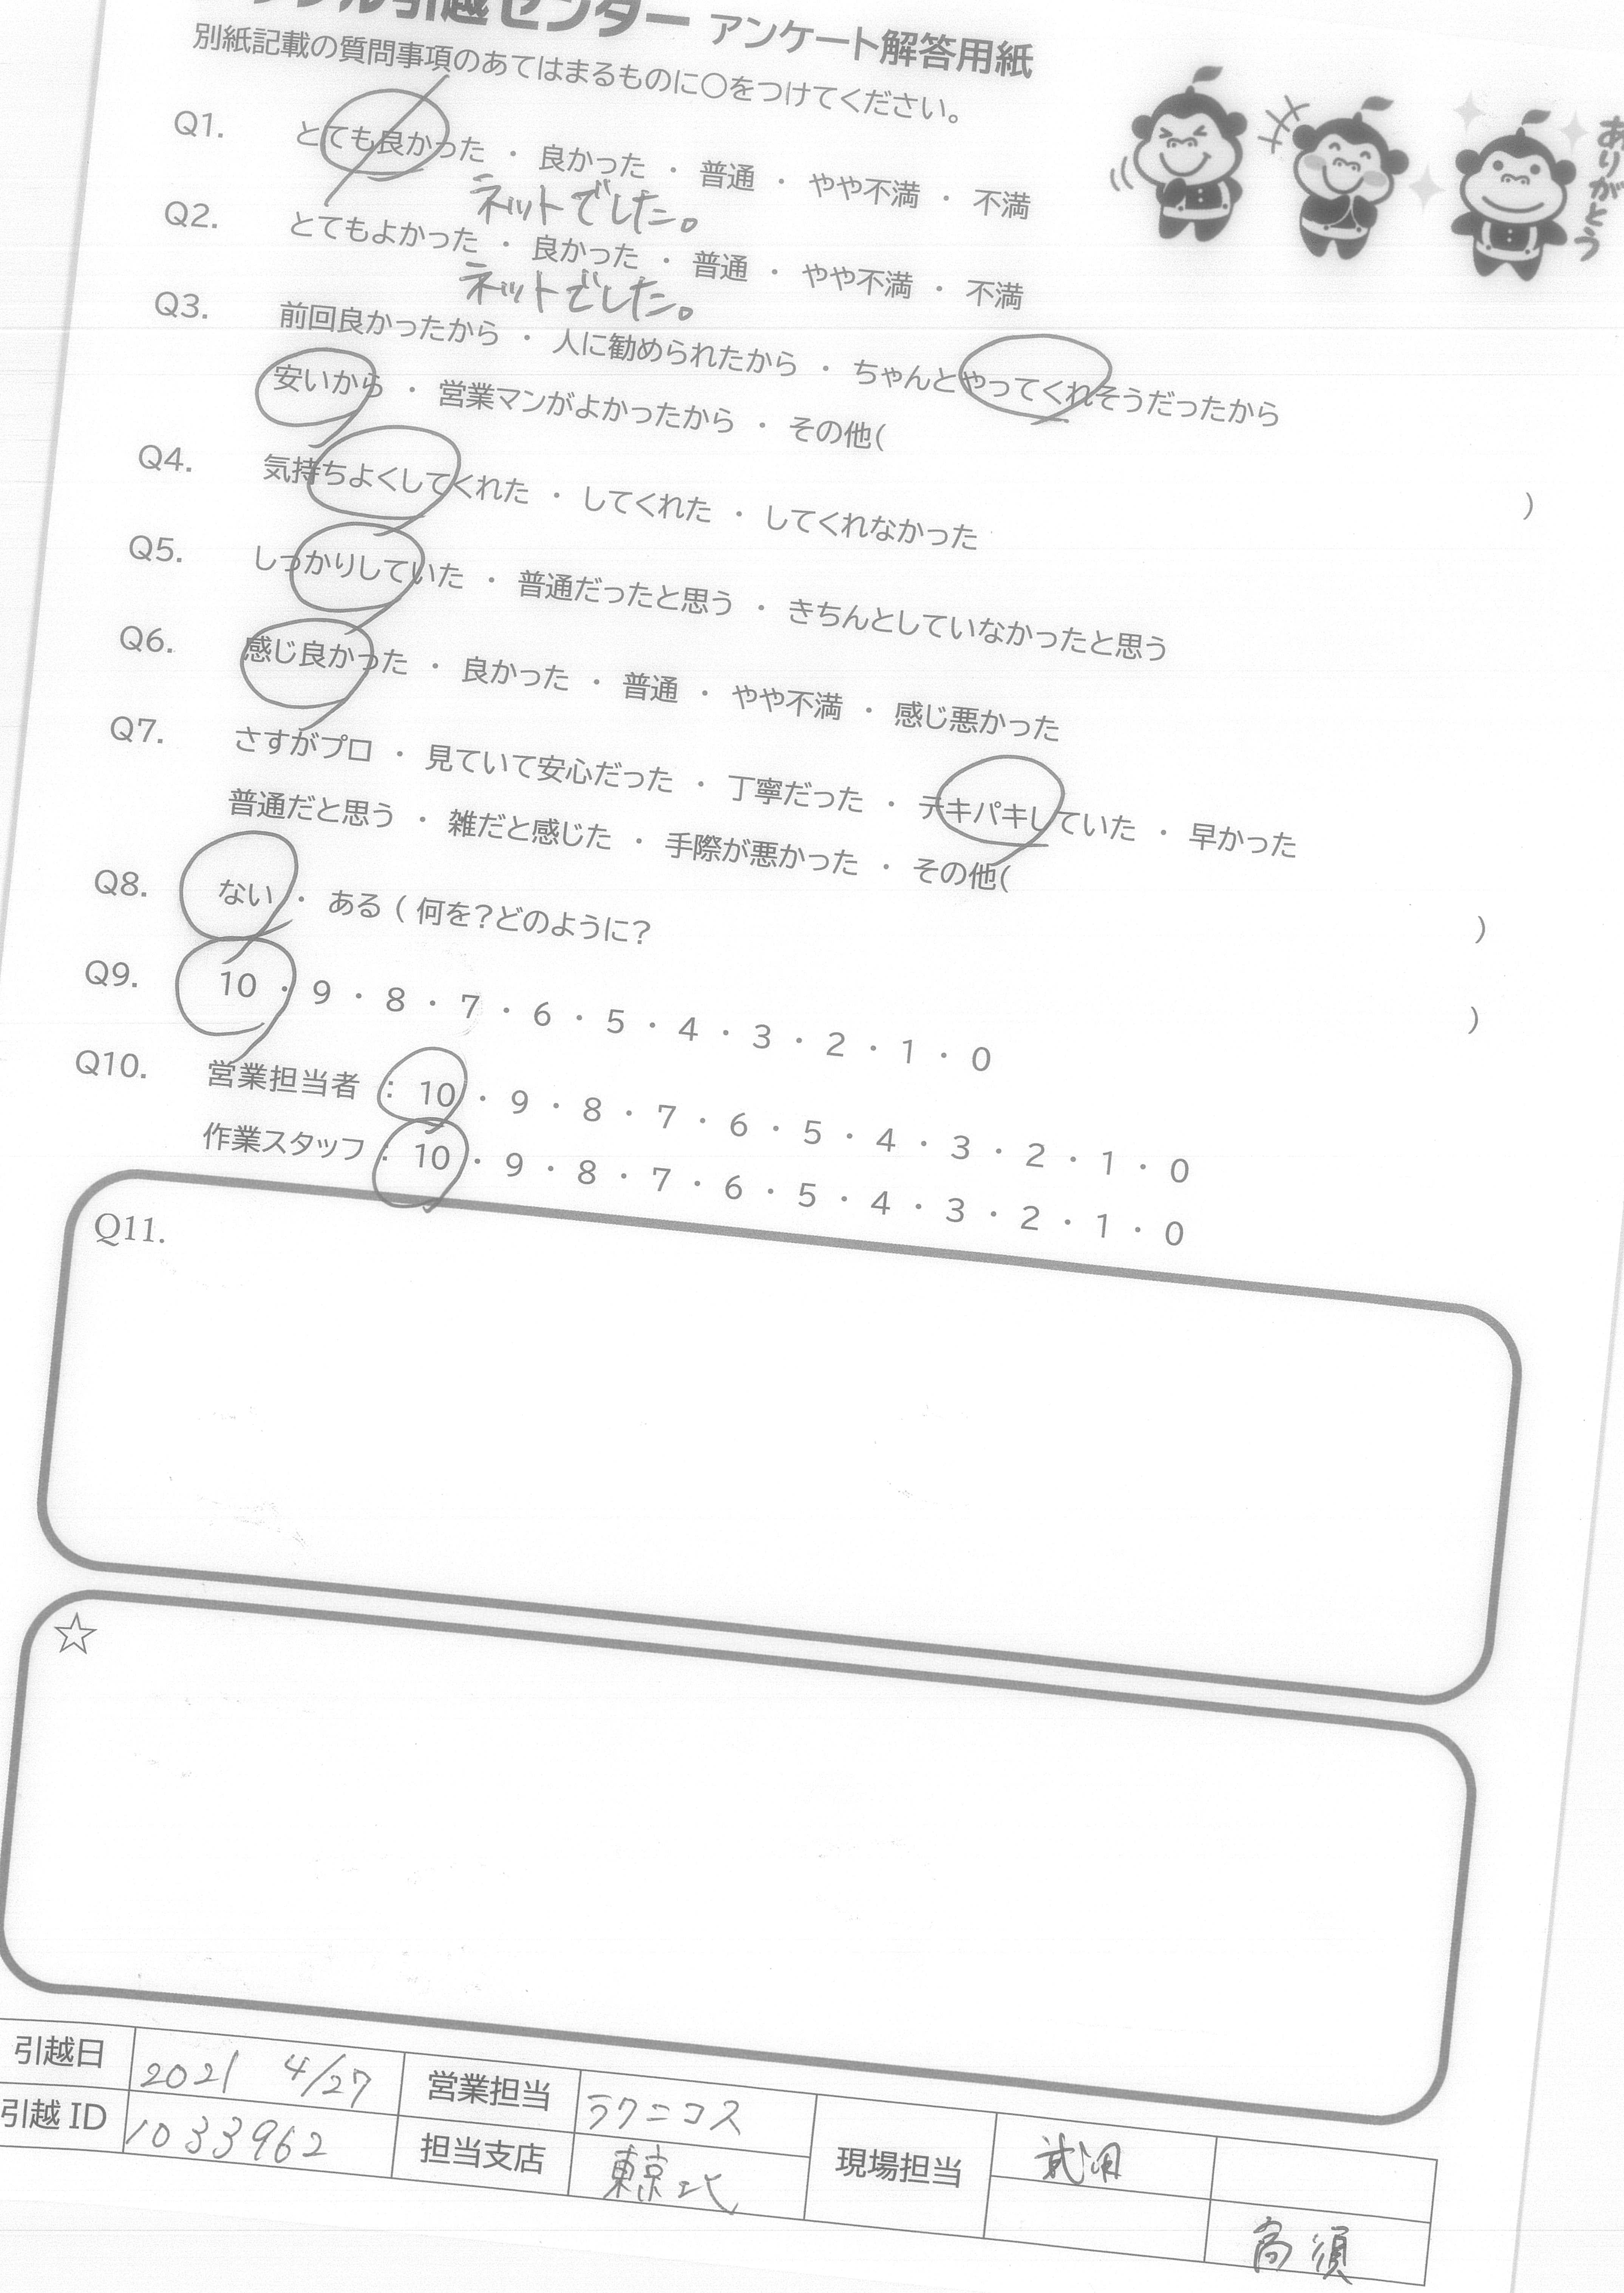 引越センター アンケート解答用紙
別紙記載の質問事項のあてはまるものに○をつけてください。
ありがとう
Q1. とても良かった ・ 良かった ・ 普通 ・ やや不満 ・ 不満
ネットでした。
Q2. とてもよかった ・ 良かった ・ 普通 ・ やや不満 ・ 不満
ネットでした。
Q3. 前回良かったから ・ 人に勧められたから ・ ちゃんとやってくれそうだったから
安いから ・ 営業マンがよかったから ・ その他( )
Q4. 気持ちよくしてくれた ・ してくれた ・ してくれなかった
Q5. しっかりしていた ・ 普通だったと思う ・ きちんとしていなかったと思う
Q6. 感じ良かった ・ 良かった ・ 普通 ・ やや不満 ・ 感じ悪かった
Q7. さすがプロ ・ 見ていて安心だった ・ 丁寧だった ・ テキパキしていた ・ 早かった
普通だと思う ・ 雑だと感じた ・ 手際が悪かった ・ その他( )
Q8. ない ・ ある ( 何を?どのように? )
Q9. 10 ・ 9 ・ 8 ・ 7 ・ 6 ・ 5 ・ 4 ・ 3 ・ 2 ・ 1 ・ 0
Q10. 営業担当者 : 10 ・ 9 ・ 8 ・ 7 ・ 6 ・ 5 ・ 4 ・ 3 ・ 2 ・ 1 ・ 0
作業スタッフ : 10 ・ 9 ・ 8 ・ 7 ・ 6 ・ 5 ・ 4 ・ 3 ・ 2 ・ 1 ・ 0
Q11.
☆
引越日 2021 4/27 営業担当 ラクニコス
引越 ID 1033962 担当支店 東京北 現場担当
高須